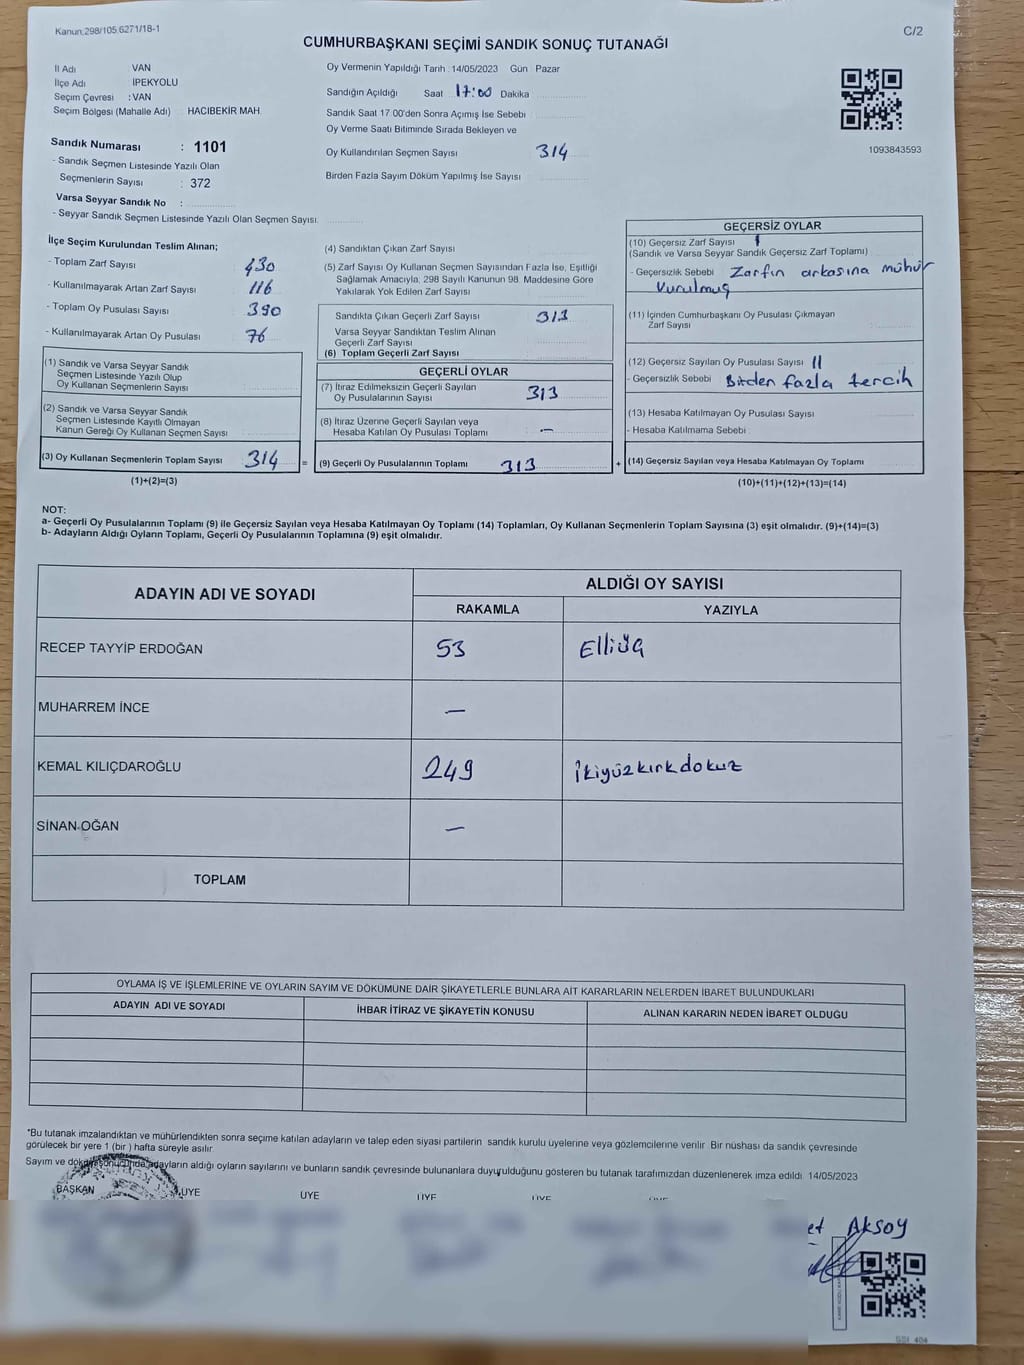 Kanun:298/105,6271/18-1
C/2
CUMHURBAŞKANI SEÇİMİ SANDIK SONUÇ TUTANAĞI
İl Adı VAN
İlçe Adı İPEKYOLU
Seçim Çevresi : VAN
Seçim Bölgesi (Mahalle Adı) HACIBEKİR MAH.
Oy Vermenin Yapıldığı Tarih :14/05/2023 Gün : Pazar
Sandığın Açıldığı Saat 17:00 Dakika
Sandık Saat 17.00'den Sonra Açımış İse Sebebi
Oy Verme Saati Bitiminde Sırada Bekleyen ve
Oy Kullandırılan Seçmen Sayısı 314
Birden Fazla Sayım Döküm Yapılmış İse Sayısı
1093843593
Sandık Numarası : 1101
- Sandık Seçmen Listesinde Yazılı Olan
Seçmenlerin Sayısı : 372
Varsa Seyyar Sandık No :
- Seyyar Sandık Seçmen Listesinde Yazılı Olan Seçmen Sayısı:
İlçe Seçim Kurulundan Teslim Alınan;
- Toplam Zarf Sayısı 430
- Kullanılmayarak Artan Zarf Sayısı 116
- Toplam Oy Pusulası Sayısı 390
- Kullanılmayarak Artan Oy Pusulası 76
(1) Sandık ve Varsa Seyyar Sandık
Seçmen Listesinde Yazılı Olup
Oy Kullanan Seçmenlerin Sayısı
(2) Sandık ve Varsa Seyyar Sandık
Seçmen Listesinde Kayıtlı Olmayan
Kanun Gereği Oy Kullanan Seçmen Sayısı
(3) Oy Kullanan Seçmenlerin Toplam Sayısı 314 =
(1)+(2)=(3)
(4) Sandıktan Çıkan Zarf Sayısı
(5) Zarf Sayısı Oy Kullanan Seçmen Sayısından Fazla İse, Eşitliği
Sağlamak Amacıyla, 298 Sayılı Kanunun 98. Maddesine Göre
Yakılarak Yok Edilen Zarf Sayısı
Sandıkta Çıkan Geçerli Zarf Sayısı 313
Varsa Seyyar Sandıktan Teslim Alınan
Geçerli Zarf Sayısı
(6) Toplam Geçerli Zarf Sayısı
GEÇERLİ OYLAR
(7) İtiraz Edilmeksizin Geçerli Sayılan
Oy Pusulalarının Sayısı 313
(8) İtiraz Üzerine Geçerli Sayılan veya
Hesaba Katılan Oy Pusulası Toplamı —
(9) Geçerli Oy Pusulalarının Toplamı 313 +
GEÇERSİZ OYLAR
(10) Geçersiz Zarf Sayısı 1
(Sandık ve Varsa Seyyar Sandık Geçersiz Zarf Toplamı)
- Geçersizlik Sebebi Zarfın arkasına mühür
vurulmuş
(11) İçinden Cumhurbaşkanı Oy Pusulası Çıkmayan
Zarf Sayısı
(12) Geçersiz Sayılan Oy Pusulası Sayısı 11
- Geçersizlik Sebebi Birden fazla tercih
(13) Hesaba Katılmayan Oy Pusulası Sayısı
- Hesaba Katılmama Sebebi
(14) Geçersiz Sayılan veya Hesaba Katılmayan Oy Toplamı
(10)+(11)+(12)+(13)=(14)
NOT:
a- Geçerli Oy Pusulalarının Toplamı (9) ile Geçersiz Sayılan veya Hesaba Katılmayan Oy Toplamı (14) Toplamları, Oy Kullanan Seçmenlerin Toplam Sayısına (3) eşit olmalıdır. (9)+(14)=(3)
b- Adayların Aldığı Oyların Toplamı, Geçerli Oy Pusulalarının Toplamına (9) eşit olmalıdır.
ADAYIN ADI VE SOYADI
ALDIĞI OY SAYISI
RAKAMLA YAZIYLA
RECEP TAYYİP ERDOĞAN 53
MUHARREM İNCE —
KEMAL KILIÇDAROĞLU 249 ikiyüzkırkdokuz
SİNAN OĞAN —
TOPLAM
OYLAMA İŞ VE İŞLEMLERİNE VE OYLARIN SAYIM VE DÖKÜMÜNE DAİR ŞİKAYETLERLE BUNLARA AİT KARARLARIN NELERDEN İBARET BULUNDUKLARI
ADAYIN ADI VE SOYADI İHBAR İTİRAZ VE ŞİKAYETİN KONUSU ALINAN KARARIN NEDEN İBARET OLDUĞU
*Bu tutanak imzalandıktan ve mühürlendikten sonra seçime katılan adayların ve talep eden siyasi partilerin sandık kurulu üyelerine veya gözlemcilerine verilir. Bir nüshası da sandık çevresinde
görülecek bir yere 1 (bir ) hafta süreyle asılır.
Sayım ve döküm sonucunda adayların aldığı oyların sayılarını ve bunların sandık çevresinde bulunanlara duyurulduğunu gösteren bu tutanak tarafımızdan düzenlenerek imza edildi. 14/05/2023
BAŞKAN ÜYE ÜYE ÜYE ÜYE
Aksoy